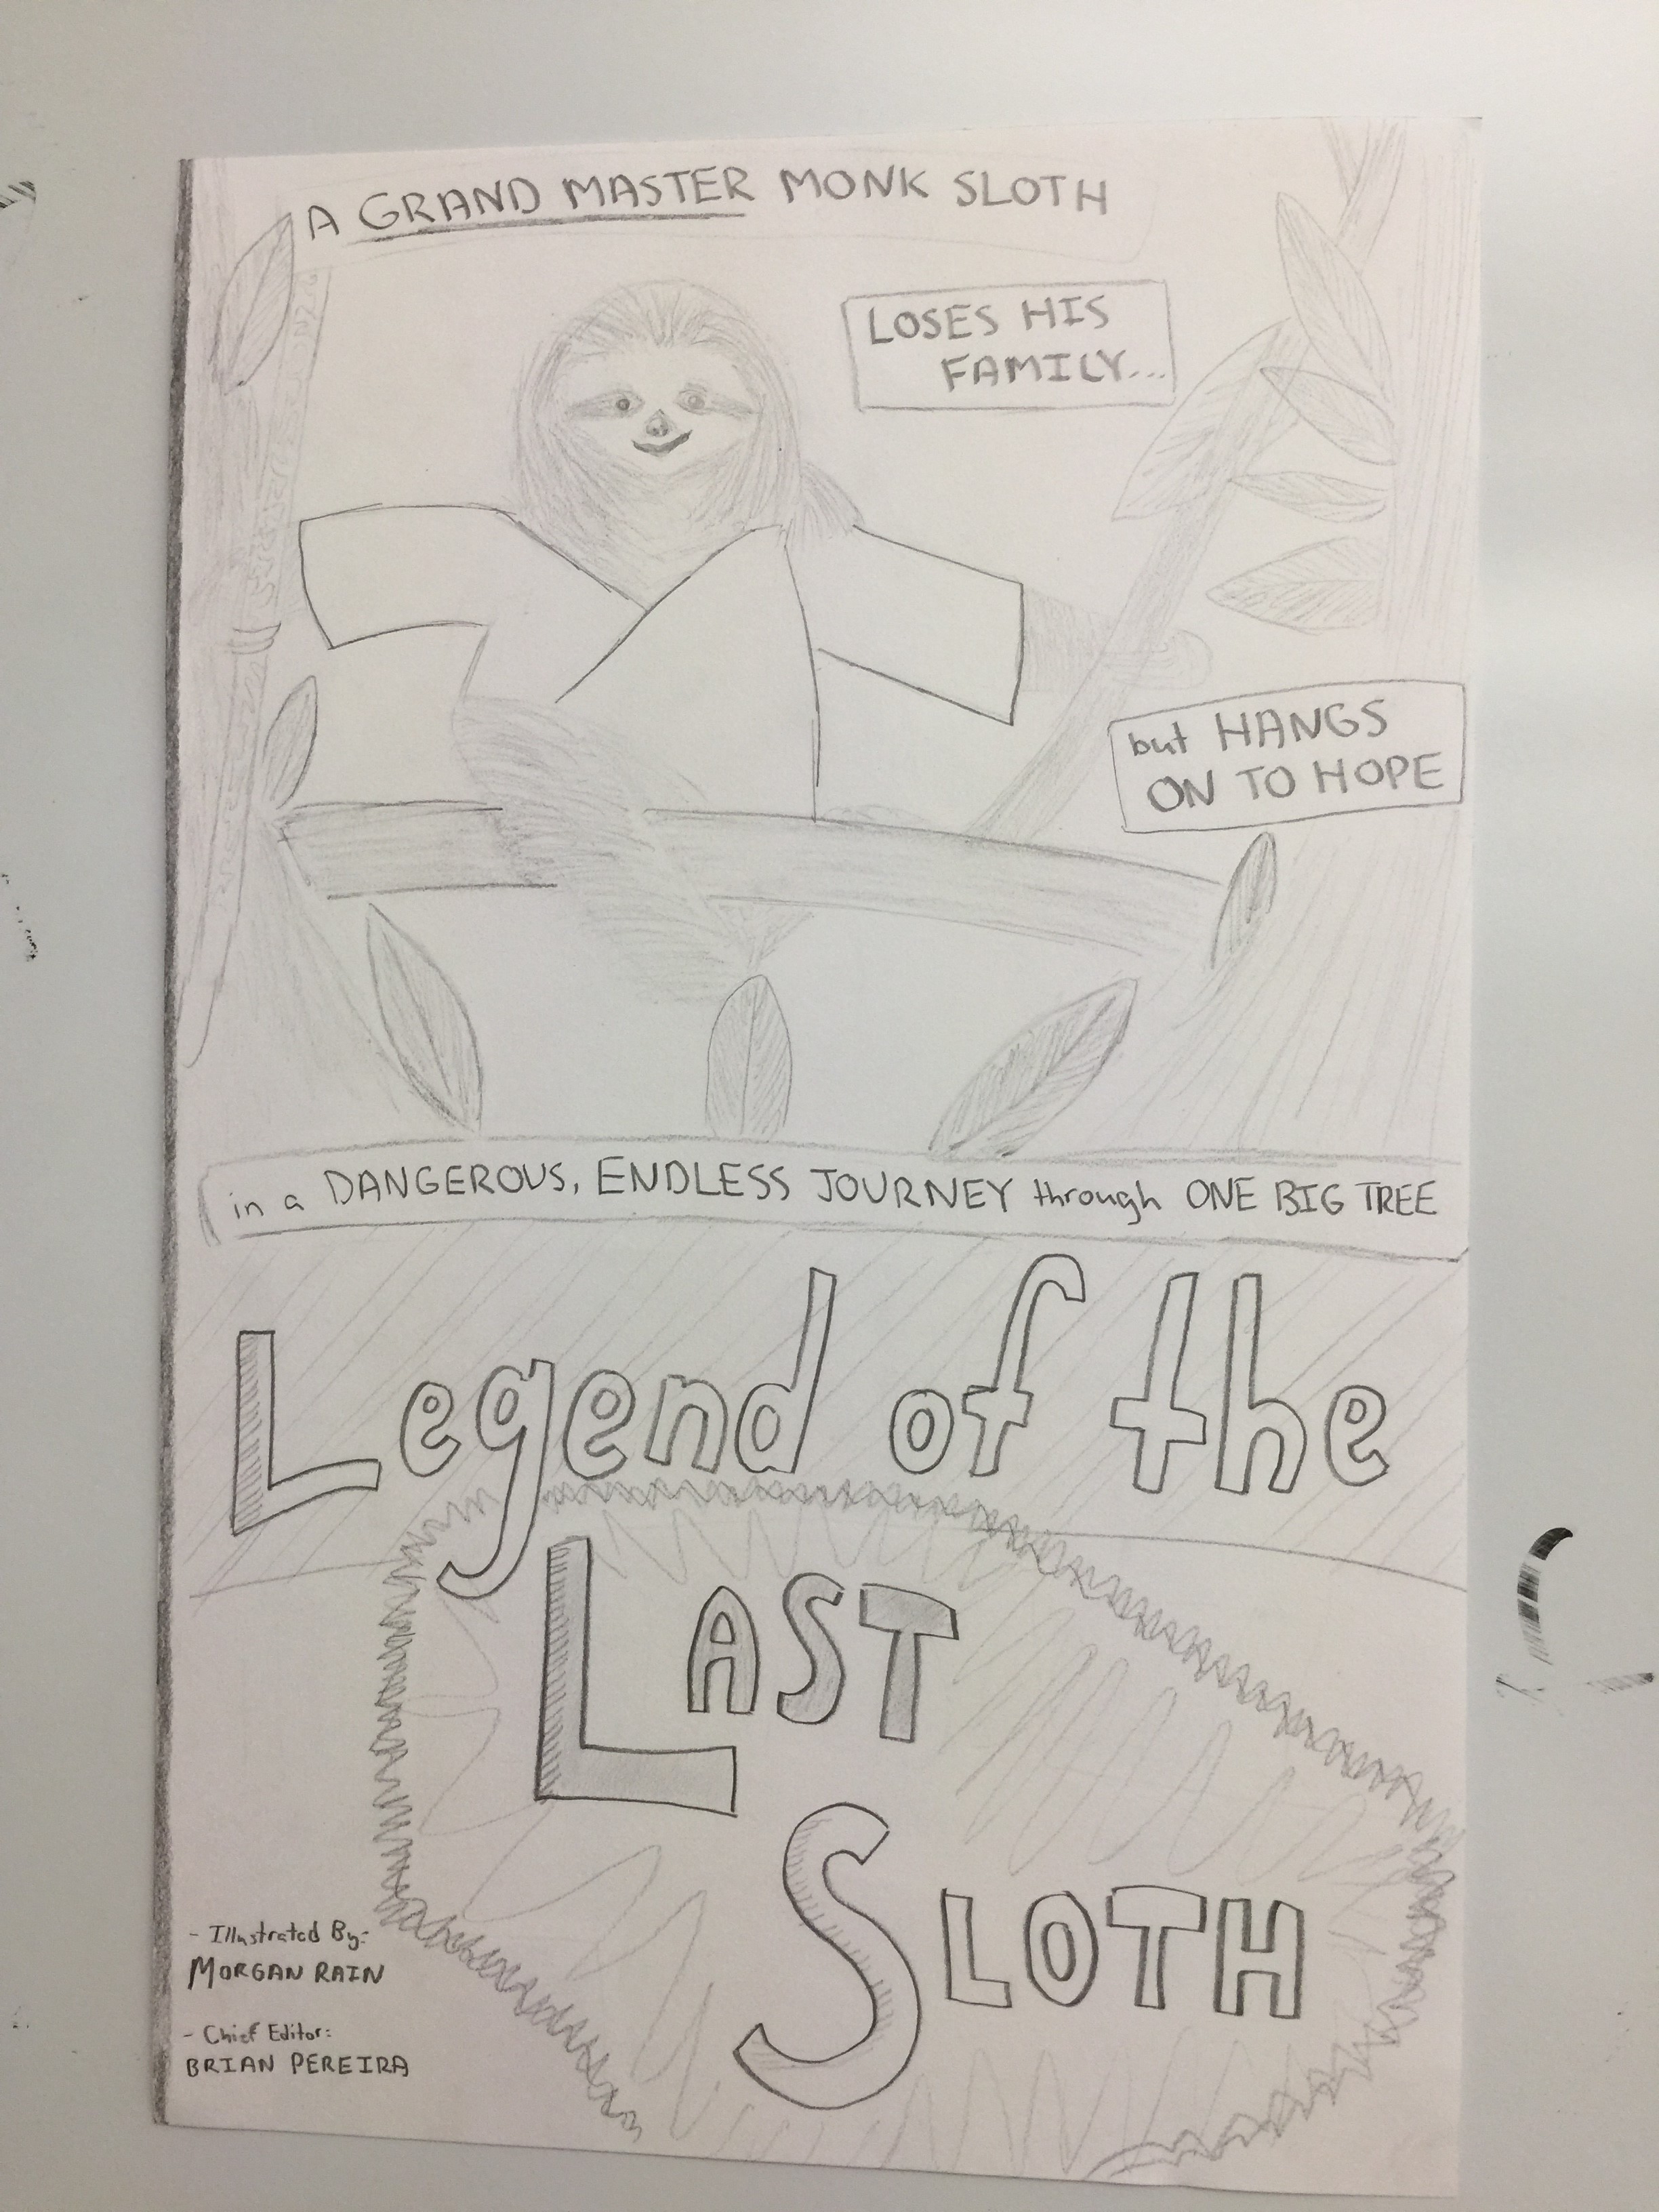 A GRAND MASTER MONK SLOTH
LOSES HIS
FAMILY...
but HANGS
ON TO HOPE
in a DANGEROUS, ENDLESS JOURNEY through ONE BIG TREE
Legend of the
LAST
SLOTH
- Illustrated By:
MORGAN RAIN
- Chief Editor:
BRIAN PEREIRA